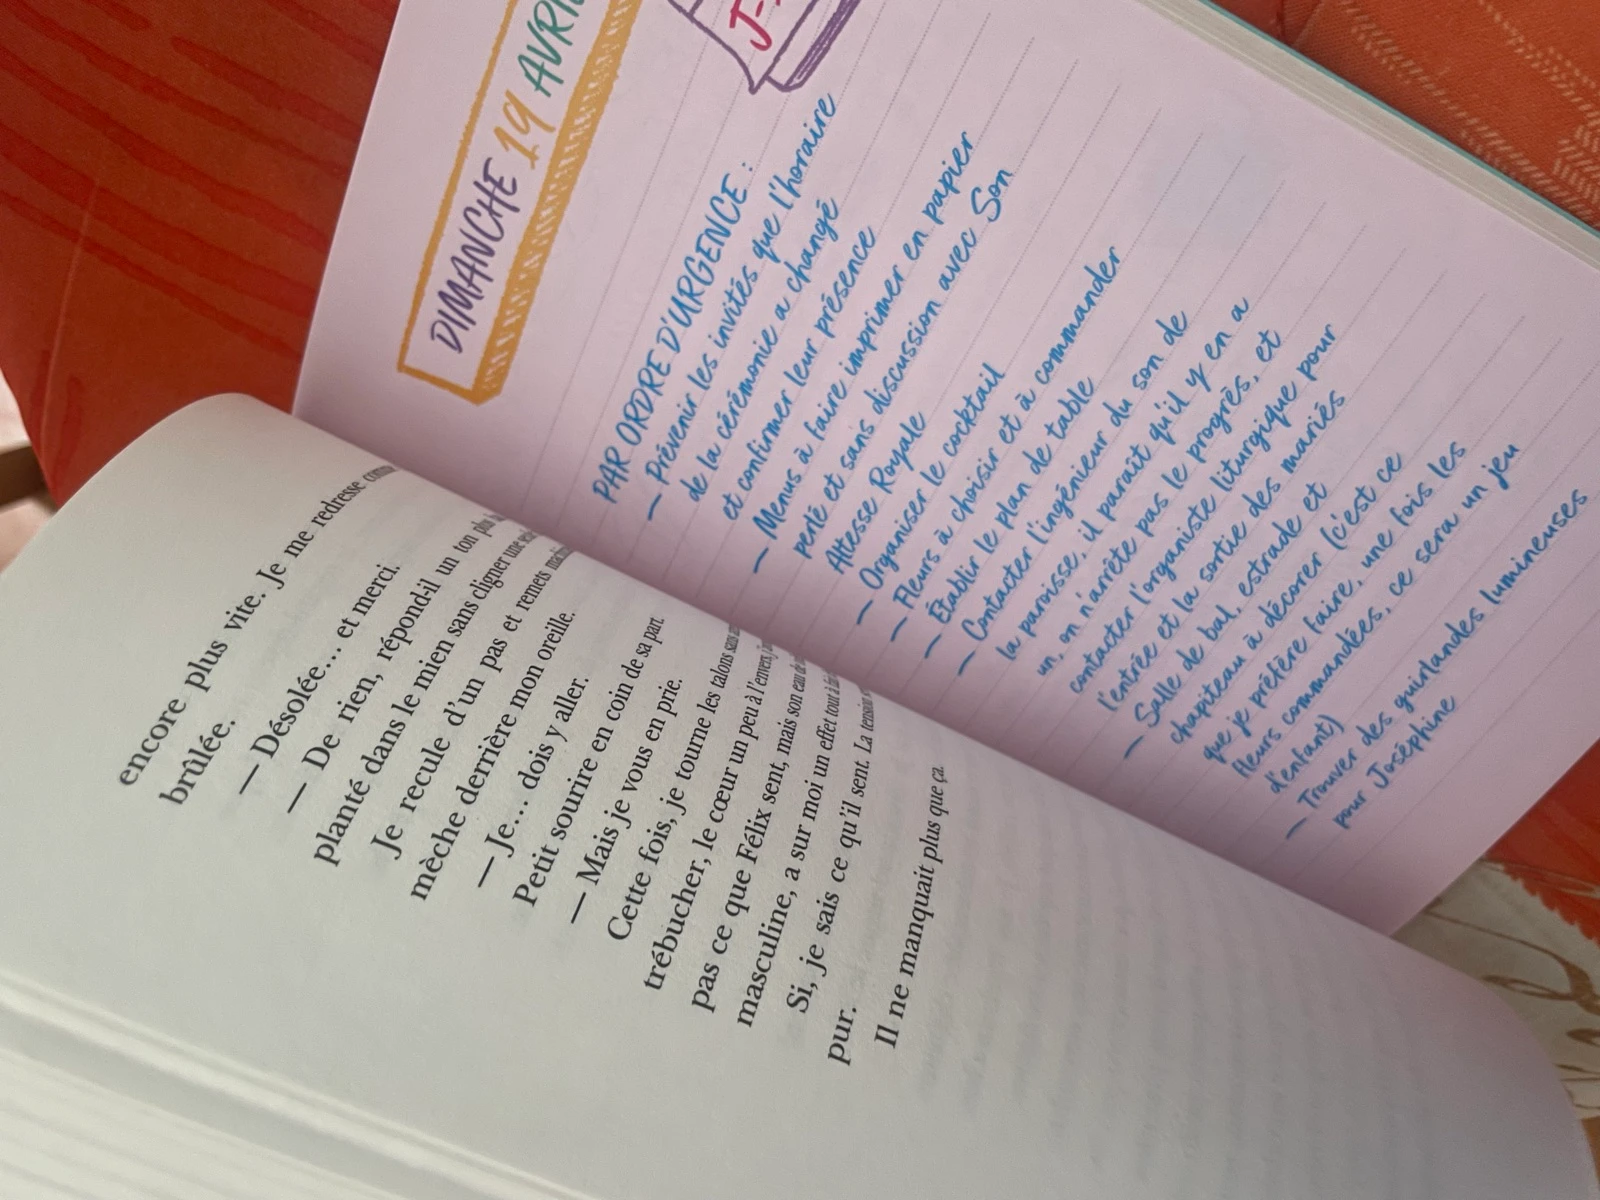 encore plus vite. Je me redresse
brûlée.
— Désolée… et merci.
— De rien, répond-il un ton plus
planté dans le mien sans cligner une
Je recule d'un pas et remets
mèche derrière mon oreille.
— Je… dois y aller.
Petit sourire en coin de sa part.
— Mais je vous en prie.
Cette fois, je tourne les talons sans
trébucher, le cœur un peu à l'envers,
pas ce que Félix sent, mais son eau de
masculine, a sur moi un effet tout à
Si, je sais ce qu'il sent. La tension
pur.
Il ne manquait plus que ça.
DIMANCHE 19 AVRIL
J-
PAR ORDRE D'URGENCE :
— Prévenir les invités que l'horaire
de la cérémonie a changé
et confirmer leur présence
— Menus à faire imprimer en papier
perlé et sans discussion avec Son
Altesse Royale
— Organiser le cocktail
— Fleurs à choisir et à commander
— Établir le plan de table
— Contacter l'ingénieur du son de
la paroisse, il paraît qu'il y en a
un, on n'arrête pas le progrès, et
contacter l'organiste liturgique pour
l'entrée et la sortie des mariés
— Salle de bal, estrade et
chapiteau à décorer (c'est ce
que je préfère faire, une fois les
fleurs commandées, ce sera un jeu
d'enfant)
— Trouver des guirlandes lumineuses
pour Joséphine